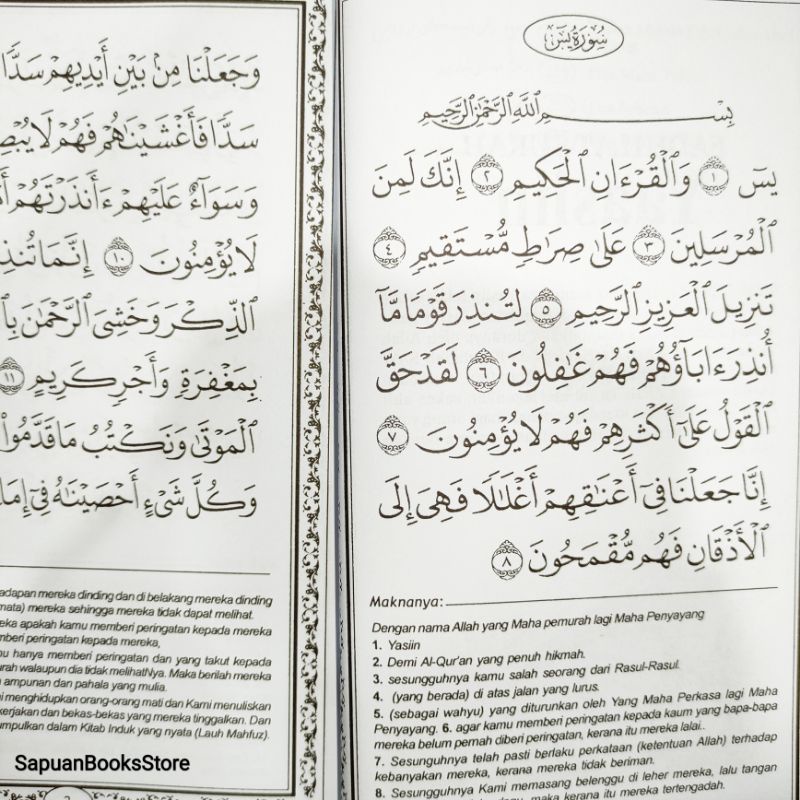 سُورَةُ يسٓ
بِسْمِ ٱللَّهِ ٱلرَّحْمَٰنِ ٱلرَّحِيمِ
يسٓ ١ وَٱلْقُرْءَانِ ٱلْحَكِيمِ ٢ إِنَّكَ لَمِنَ
ٱلْمُرْسَلِينَ ٣ عَلَىٰ صِرَٰطٍ مُّسْتَقِيمٍ ٤
تَنزِيلَ ٱلْعَزِيزِ ٱلرَّحِيمِ ٥ لِتُنذِرَ قَوْمًا مَّآ
أُنذِرَ ءَابَآؤُهُمْ فَهُمْ غَٰفِلُونَ ٦ لَقَدْ حَقَّ
ٱلْقَوْلُ عَلَىٰٓ أَكْثَرِهِمْ فَهُمْ لَا يُؤْمِنُونَ ٧
إِنَّا جَعَلْنَا فِىٓ أَعْنَٰقِهِمْ أَغْلَٰلًا فَهِىَ إِلَى
ٱلْأَذْقَانِ فَهُم مُّقْمَحُونَ ٨
Maknanya:
Dengan nama Allah yang Maha pemurah lagi Maha Penyayang
1. Yasiin
2. Demi Al-Qur'an yang penuh hikmah.
3. sesungguhnya kamu salah seorang dari Rasul-Rasul.
4. (yang berada) di atas jalan yang lurus.
5. (sebagai wahyu) yang diturunkan oleh Yang Maha Perkasa lagi Maha
Penyayang. 6. agar kamu memberi peringatan kepada kaum yang bapa-bapa
mereka belum pernah diberi peringatan, kerana itu mereka lalai..
7. Sesungguhnya telah pasti berlaku perkataan (ketentuan Allah) terhadap
kebanyakan mereka, kerana mereka tidak beriman.
8. Sesungguhnya Kami memasang belenggu di leher mereka, lalu tangan
maka kerana itu mereka tertengadah.
وَجَعَلْنَا مِنۢ بَيْنِ أَيْدِيهِمْ سَدًّا
سَدًّا فَأَغْشَيْنَٰهُمْ فَهُمْ لَا
وَسَوَآءٌ عَلَيْهِمْ ءَأَنذَرْتَهُمْ
لَا يُؤْمِنُونَ ١٠ إِنَّمَا
ٱلذِّكْرَ وَخَشِىَ ٱلرَّحْمَٰنَ
بِمَغْفِرَةٍ وَأَجْرٍ كَرِيمٍ ١١
ٱلْمَوْتَىٰ وَنَكْتُبُ مَا قَدَّمُوا۟
وَكُلَّ شَىْءٍ أَحْصَيْنَٰهُ فِىٓ
mereka dinding dan di belakang mereka dinding
mereka sehingga mereka tidak dapat melihat.
apakah kamu memberi peringatan kepada mereka
peringatan kepada mereka,
hanya memberi peringatan dan yang takut kepada
walaupun dia tidak melihatNya. Maka berilah mereka
ampunan dan pahala yang mulia.
menghidupkan orang-orang mati dan Kami menuliskan
kerjakan dan bekas-bekas yang mereka tinggalkan. Dan
dalam Kitab Induk yang nyata (Lauh Mahfuz).
SapuanBooksStore